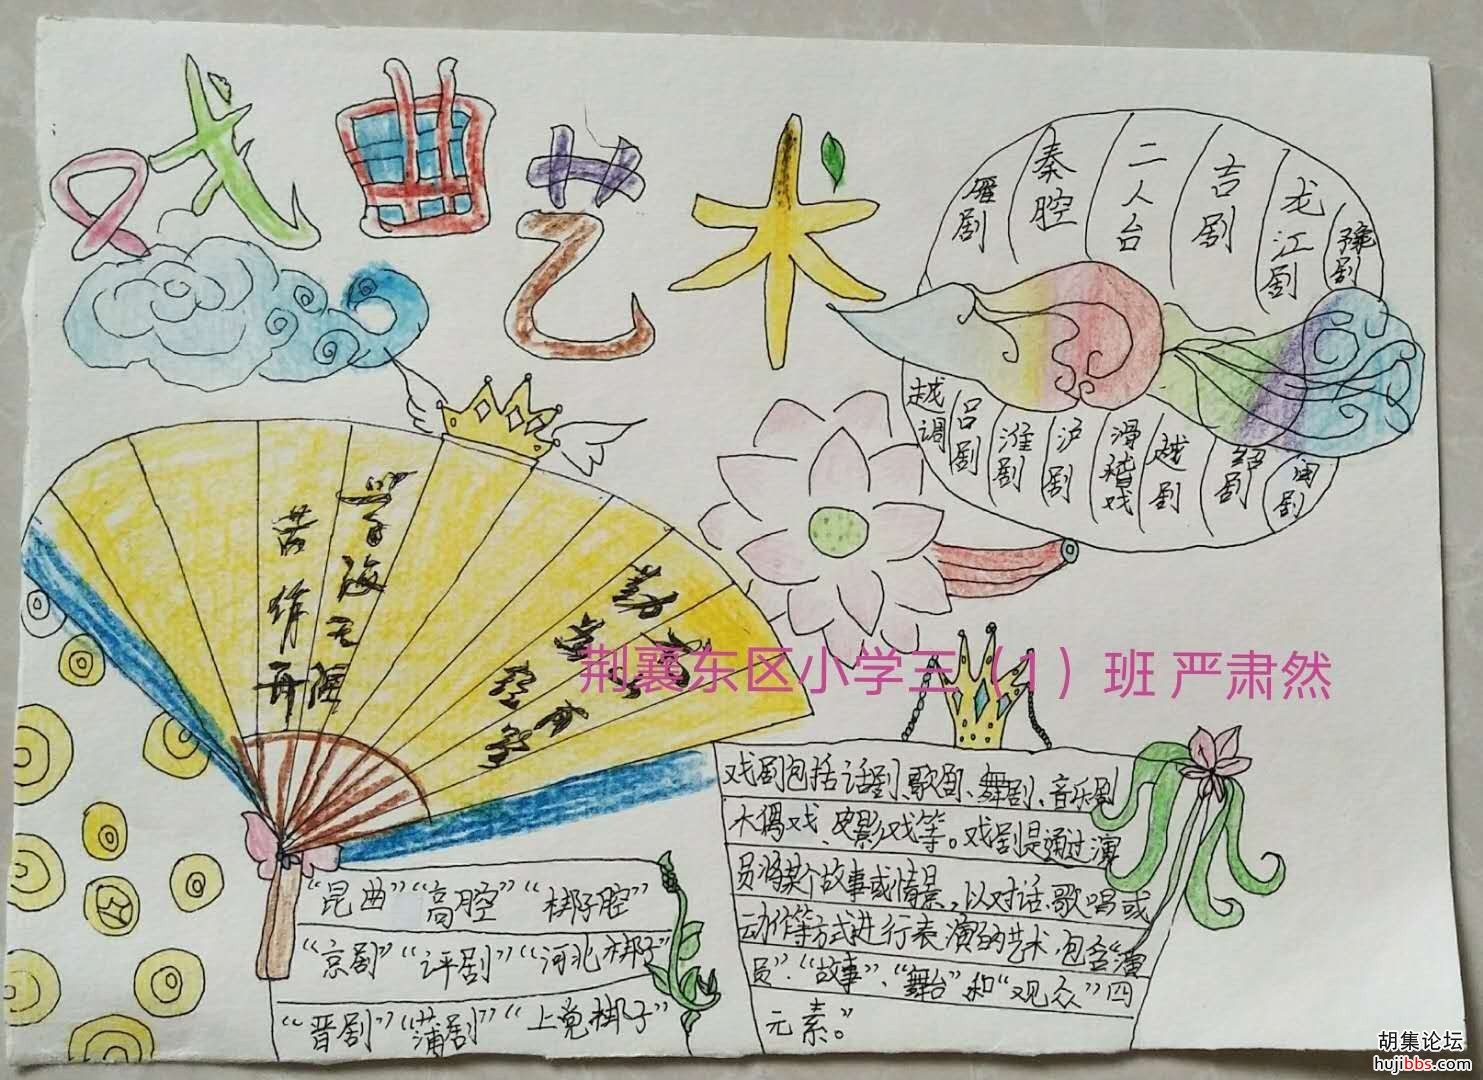 戏曲艺术
雁剧
秦腔
二人台
吉剧
龙江剧
豫剧
越调
吕剧
淮剧
沪剧
滑稽戏
越剧
婺剧
闽剧
学海无涯
苦作舟
勤为径
荆襄东区小学三（1）班 严肃然
戏剧包括话剧、歌剧、舞剧、音乐剧
木偶戏、皮影戏等。戏剧是通过演
员将某个故事或情景，以对话、歌唱或
动作等方式进行表演的艺术，包含“演
员”、“故事”、“舞台”和“观众”四
元素。”
“昆曲”“高腔”“梆子腔”
“京剧”“评剧”“河北梆子”
“晋剧”“蒲剧”“上党梆子”
胡集论坛
hujibbs.com